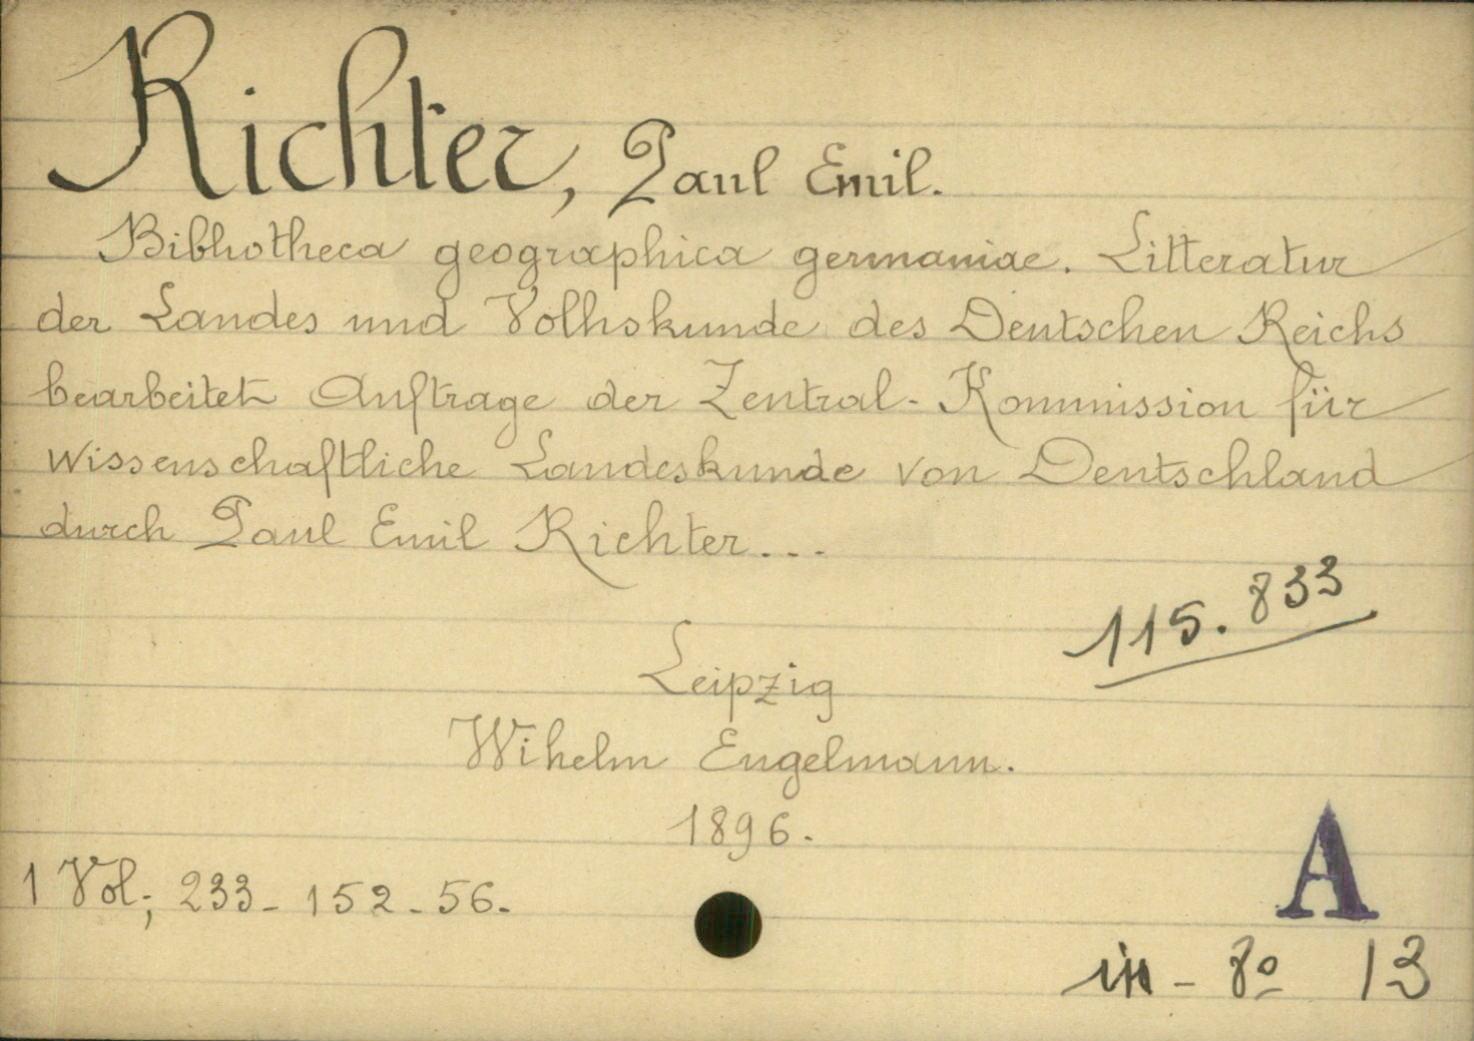 Richter, Paul Emil.
Bibliotheca geographica germaniae. Litteratur
der Landes und Volkskunde des Deutschen Reichs
bearbeitet Auftrage der Zentral-Kommission für
wissenschaftliche Landeskunde von Deutschland
durch Paul Emil Richter...
115.833
Leipzig
Wihelm Engelmann.
1896.
1 Vol; 233-152-56.
A
in-8º 13